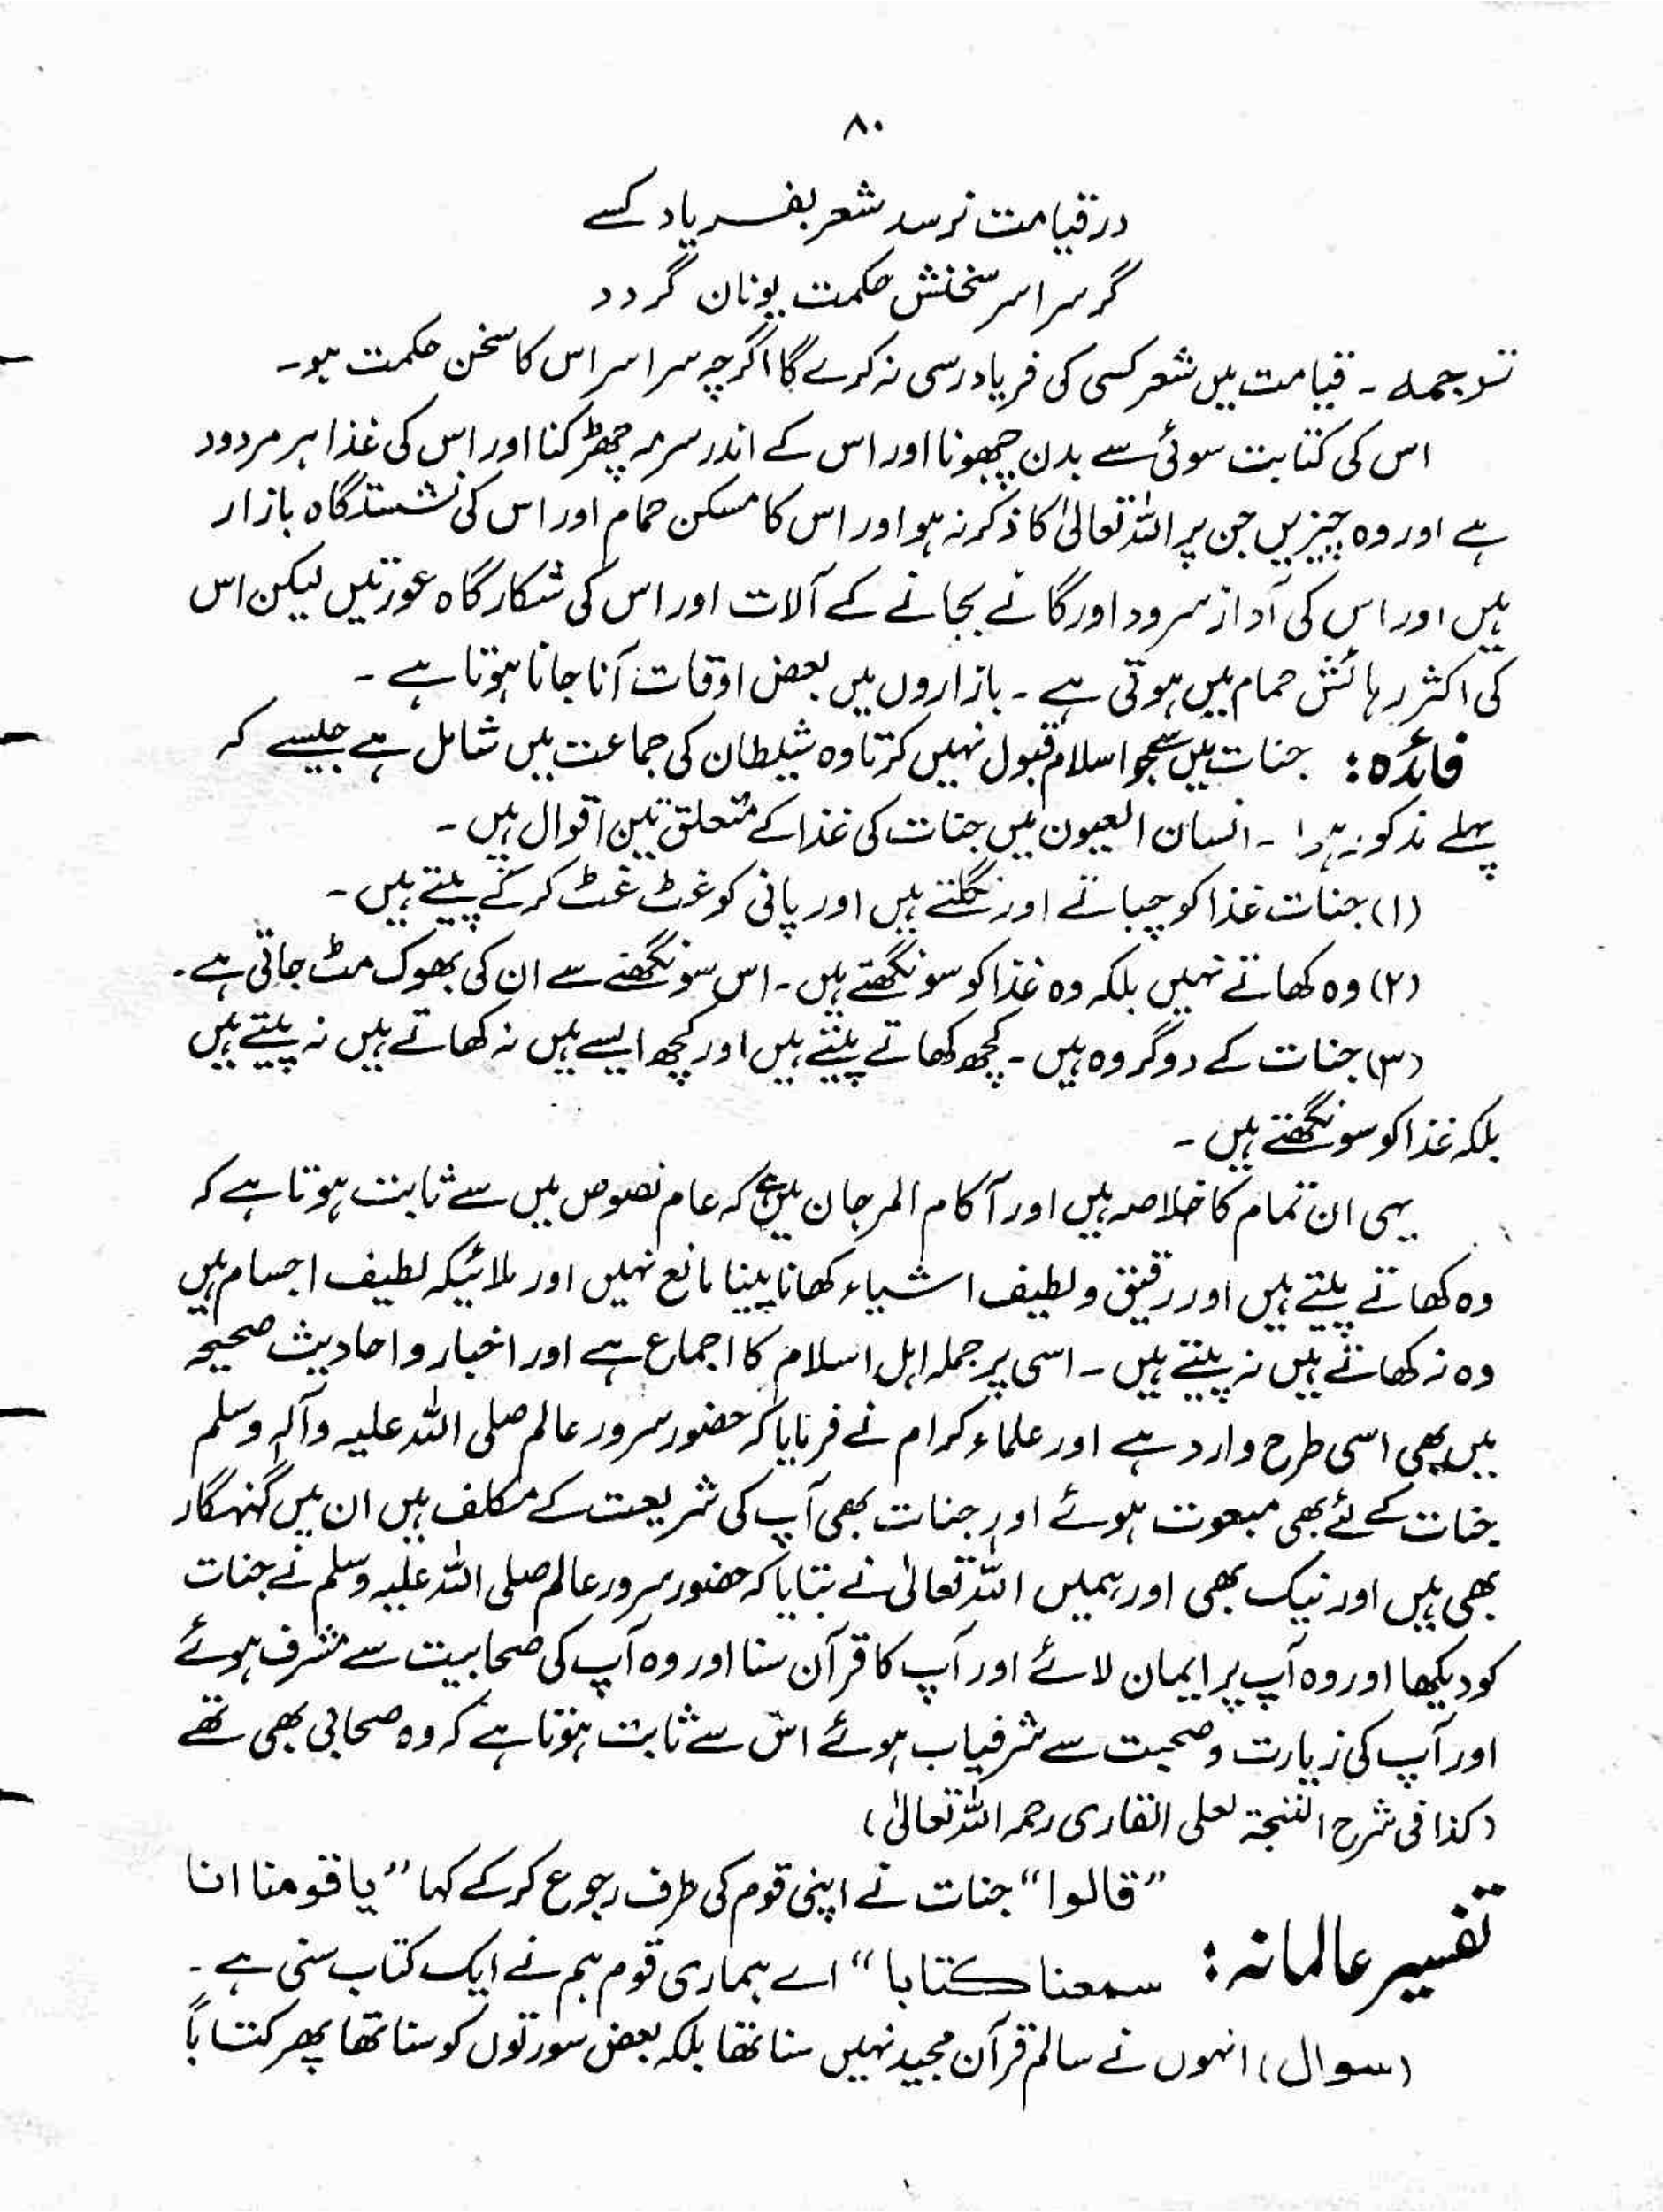 ۸۰
در قیامت نرسد شعر بفریاد کسے
گر سراسر سخنش حکمت یونان گردد
ترجمہ ۔ قیامت میں شعر کسی کی فریاد رسی نہ کرے گا اگرچہ سراسر اس کا سخن حکمت ہو۔
اس کی کتابت سوئی سے بدن چبھونا اور اس کے اندر سرمہ چھڑکنا اور اس کی غذا ہر مردود
ہے اور وہ چیزیں جن پر اللہ تعالیٰ کا ذکر نہ ہو اور اس کا مسکن حمام اور اس کی نشستگاہ بازار
ہیں اور اس کی آواز سرود اور گانے بجانے کے آلات اور اس کی شکار گاہ عورتیں لیکن اس
کی اکثر رہائش حمام میں ہوتی ہے ۔ بازاروں میں بعض اوقات آنا جانا ہوتا ہے ۔
فائدہ : جنات میں سے جو اسلام قبول نہیں کرتا وہ شیطان کی جماعت میں شامل ہے جیسے کہ
پہلے مذکور ہوا ۔ انسان العیون میں جنات کی غذا کے متعلق تین اقوال ہیں ۔
(۱) جنات غذا کو چباتے اور نگلتے ہیں اور پانی کو غٹ غٹ کر کے پیتے ہیں ۔
(۲) وہ کھاتے نہیں بلکہ وہ غذا کو سونگھتے ہیں ۔ اس سونگھنے سے ان کی بھوک مٹ جاتی ہے ۔
(۳) جنات کے دو گروہ ہیں ۔ کچھ کھاتے پیتے ہیں اور کچھ ایسے ہیں نہ کھاتے ہیں نہ پیتے ہیں
بلکہ غذا کو سونگھتے ہیں ۔
یہی ان تمام کا خلاصہ ہیں اور آکام المرجان میں ہے کہ عام نصوص میں سے ثابت ہوتا ہے کہ
وہ کھاتے پیتے ہیں اور رقیق و لطیف اشیاء کھانا پینا مانع نہیں اور ملائیکہ لطیف اجسام ہیں
وہ نہ کھاتے ہیں نہ پیتے ہیں ۔ اسی پر جملہ اہل اسلام کا اجماع ہے اور اخبار و احادیث صحیحہ
میں بھی اسی طرح وارد ہے اور علماء کرام نے فرمایا کہ حضور سرور عالم صلی اللہ علیہ وآلہ وسلم
جنات کے لئے بھی مبعوث ہوئے اور جنات بھی آپ کی شریعت کے مکلف ہیں ان میں گنہگار
بھی ہیں اور نیک بھی اور ہمیں اللہ تعالیٰ نے بتایا کہ حضور سرور عالم صلی اللہ علیہ وسلم نے جنات
کو دیکھا اور وہ آپ پر ایمان لائے اور آپ کا قرآن سنا اور وہ آپ کی صحابیت سے مشرف ہوئے
اور آپ کی زیارت و صحبت سے شرفیاب ہوئے اس سے ثابت ہوتا ہے کہ وہ صحابی بھی تھے
(کذا فی شرح النخبۃ لعلی القاری رحمہ اللہ تعالیٰ)
تفسیر عالمانہ : ”قالوا“ جنات نے اپنی قوم کی طرف رجوع کر کے کہا ”یا قومنا انا
سمعنا کتابا“ اے ہماری قوم ہم نے ایک کتاب سنی ہے ۔
(سوال) انہوں نے سالم قرآن مجید نہیں سنا تھا بلکہ بعض سورتوں کو سنا تھا پھر کتاباً